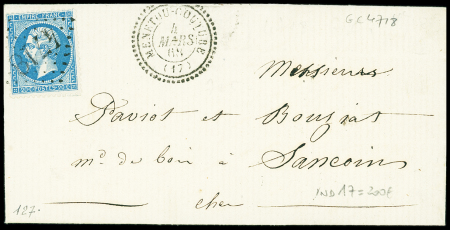 EMPIRE FRANC
20 C POSTES 20 C
MENETOU-COUTURE
4
MARS
65
(17)
GC 4718
Messieurs
Daviot et Bougrat
md de bois à
Sancoins
Cher
IND 17 = 200€
127.